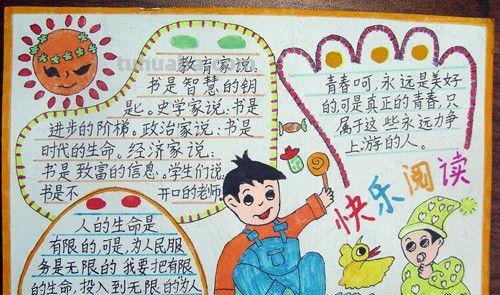 教育家说:
书是智慧的钥
匙。史学家说:书是
进步的阶梯。政治家说:书是
时代的生命。经济家说:
书是致富的信息。学生们说
书是不
开口的老师
青春呵,永远是美好
的,可是真正的青春,只
属于这些永远力争
上游的人。
快乐阅读
人的生命是
有限的,可是,为人民服
务是无限的我要把有限
的生命,投入到无限的为人